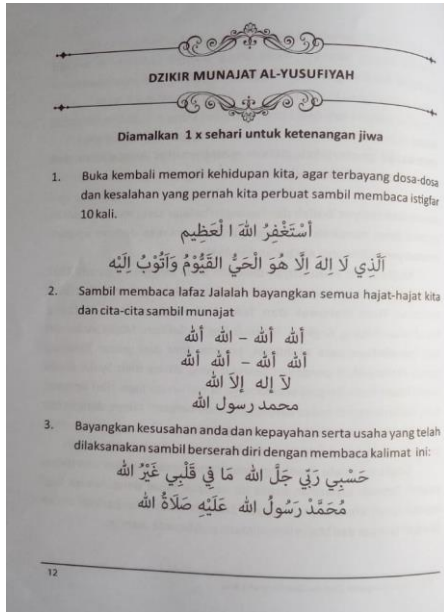 DZIKIR MUNAJAT AL-YUSUFIYAH
Diamalkan 1 x sehari untuk ketenangan jiwa
1. Buka kembali memori kehidupan kita, agar terbayang dosa-dosa
dan kesalahan yang pernah kita perbuat sambil membaca istigfar
10 kali.
أَسْتَغْفِرُ اللهَ ا لْعَظِيم
اَلَّذِي لَا إِلهَ إِلَّا هُوَ الْحَيُّ القَيُّوْمُ وَأَتُوْبُ إِلَيْه
2. Sambil membaca lafaz Jalalah bayangkan semua hajat-hajat kita
dan cita-cita sambil munajat
ألله ألله – الله ألله
ألله ألله – ألله ألله
لآ إله إلاَّ الله
محمد رسول الله
3. Bayangkan kesusahan anda dan kepayahan serta usaha yang telah
dilaksanakan sambil berserah diri dengan membaca kalimat ini:
حَسْبِي رَبِّي جَلَّ الله مَا فِي قَلْبِي غَيْرُ الله
مُحَمَّدْ رَسُولُ الله عَلَيْهِ صَلَاةُ الله
12